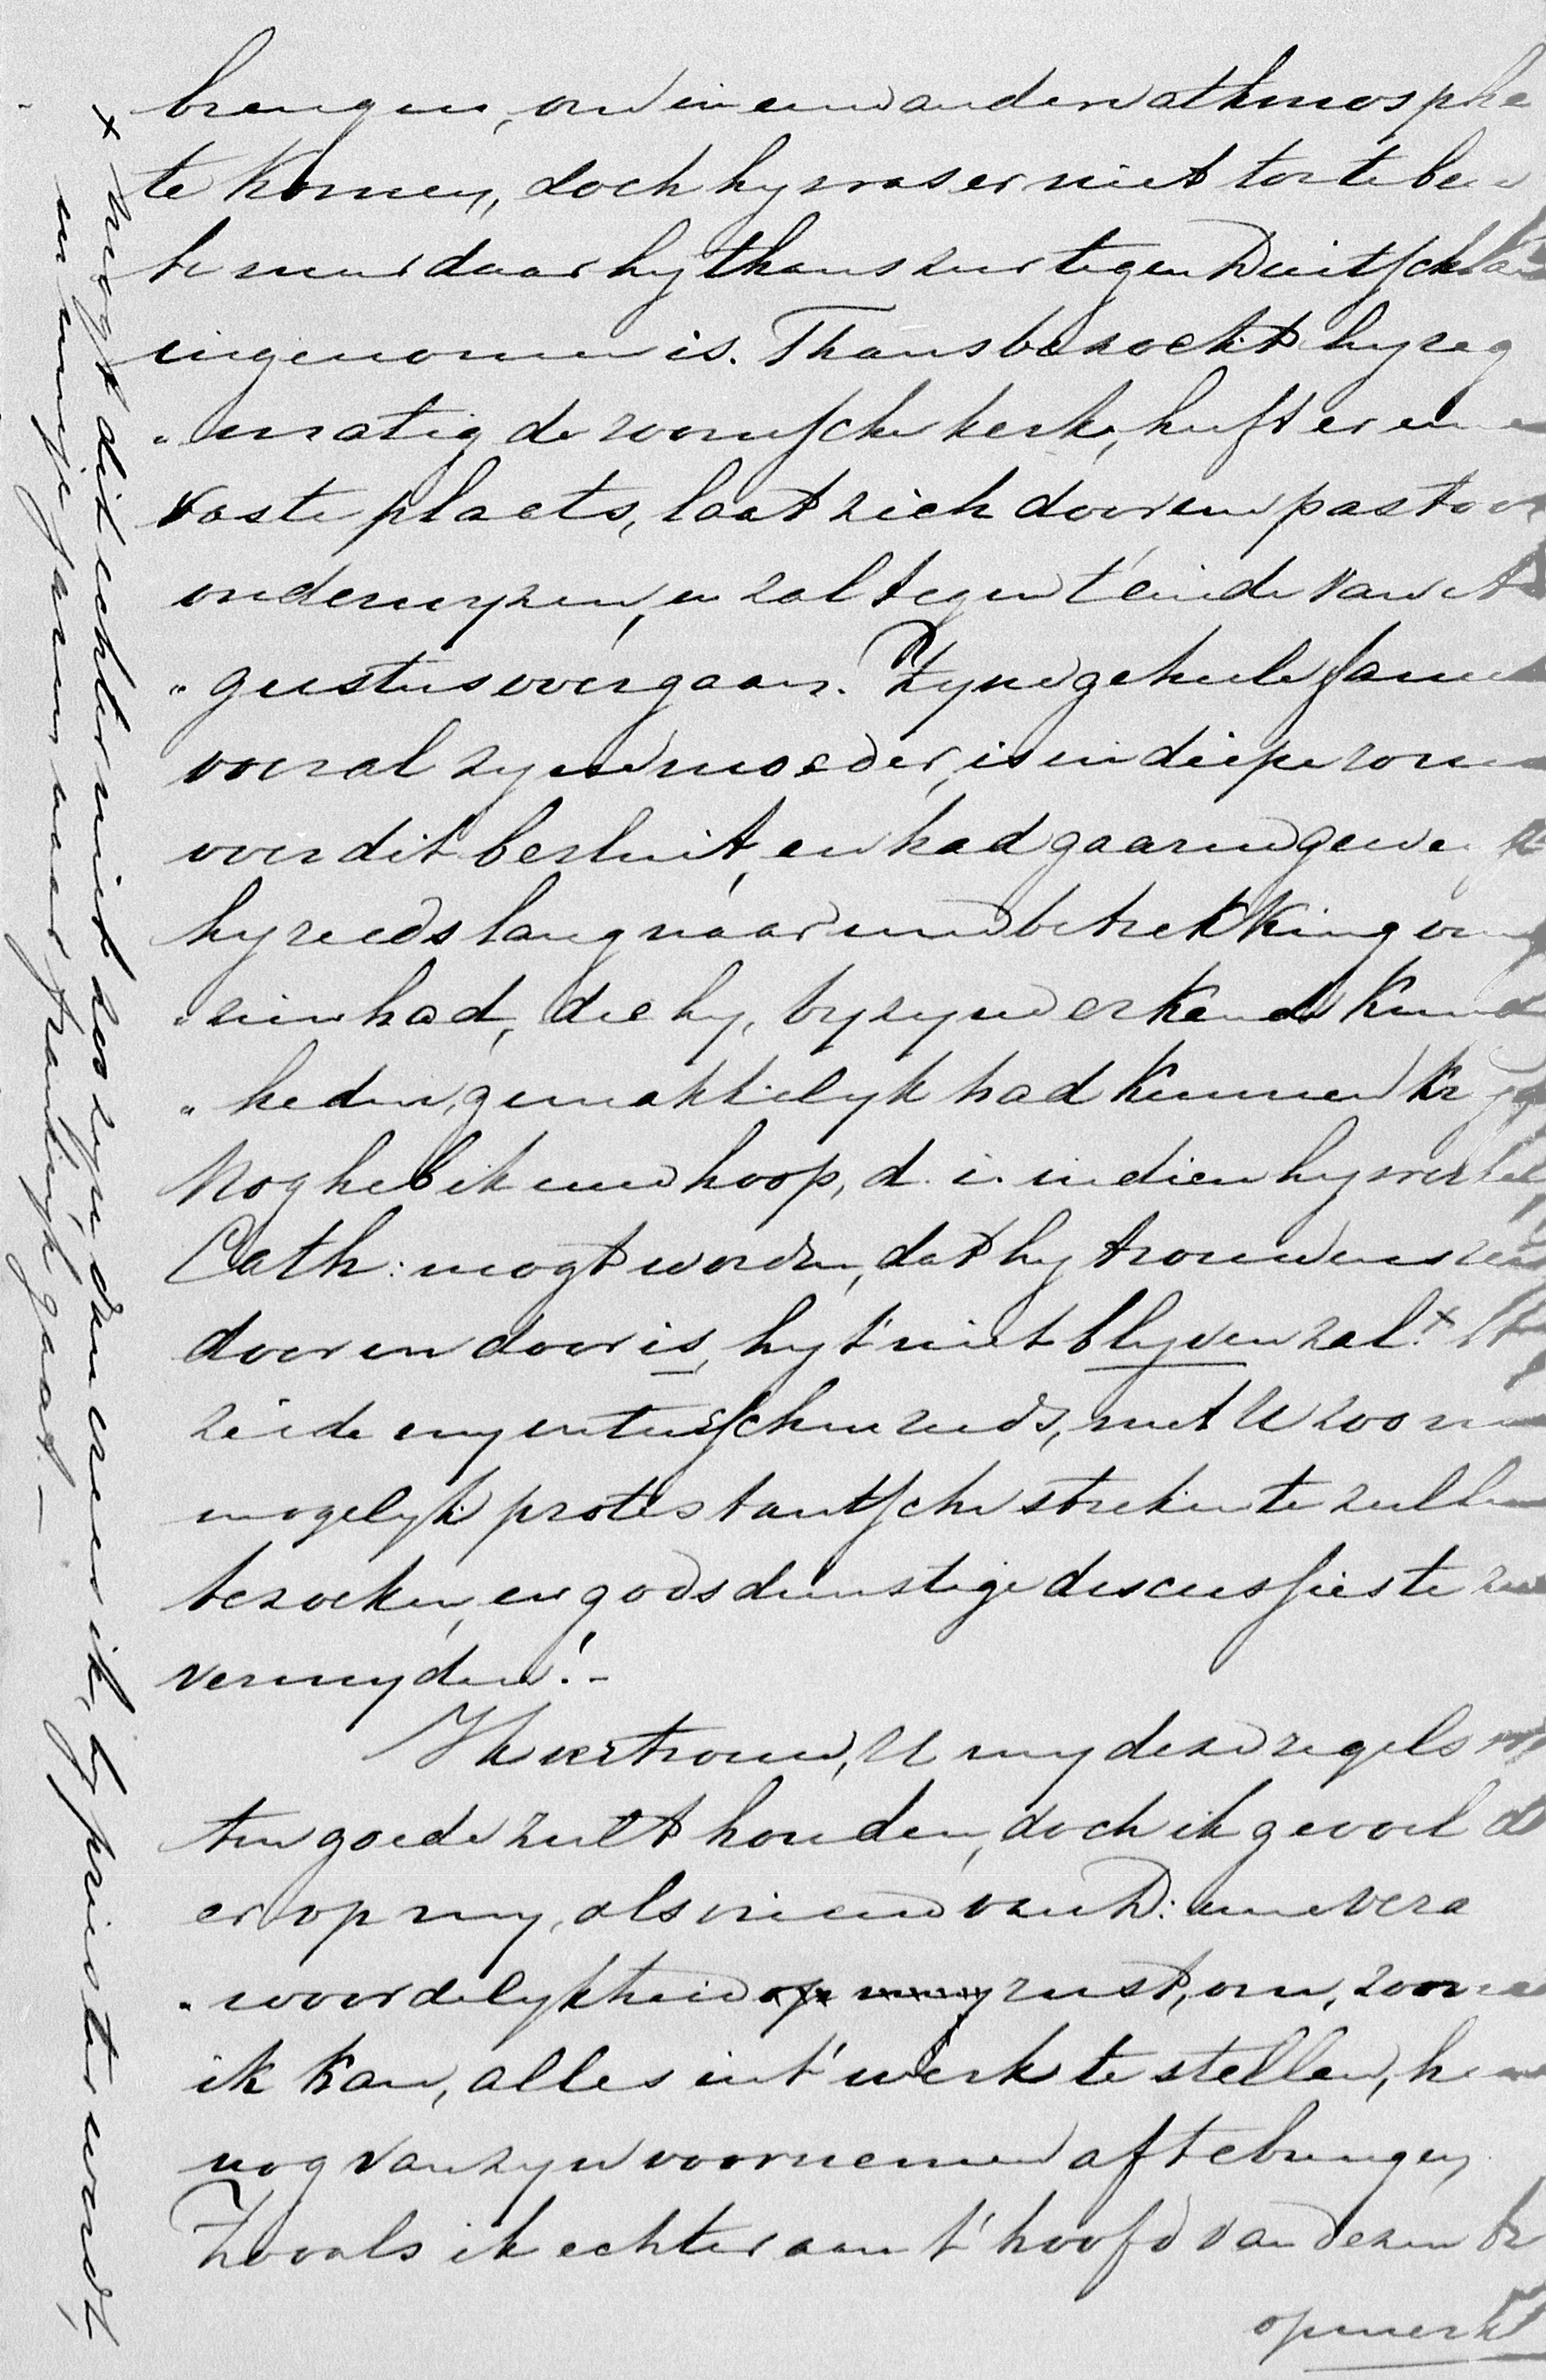 brengen, om in een andere athmosphe
te komen, doch hy was er niet toe te be
te meer daar hy thans zeer tegen Duitschlan
ingenomen is. Thans bezoekt hy reg
„matig de roomsche kerk, heeft er eene
vaste plaats, laat zich door een pastoor
onderwyzen, en zal tegen t'einde van A
„gustus overgaan. Zyne geheele fam
vooral zyne moeder, is in diepe rouw
over dit besluit, en had gaarne gewe
hy reeds lang naar eene betrekking om
„zien had, die hy, by zyne erkende kund
„heden, gemakkelyk had kunnen kryg
Nog heb ik eene hoop, d. i. indien hy
Cath: mogt worden, dat hy trouwens
door en door is, hy t' niet blyven zal.x
zeide my intusschen reeds, met U zoo
mogelyk protestantsche streken te zullen
bezoeken, en godsdienstige discussies te
vermyden!-
Ik vertrouw, U my deze regels
ten goede zult houden, doch ik gevoel d
er op my, als vriend van D: eene vera
„woordelykheid op my rust, om, zoo
ik kan, alles in t' werk te stellen, h
nog van zyn voornemen af te brengen
Zooals ik echter aan t' hoofd van dezen br
opmerkt
x mogt dit echter niet zoo zyn, dan vrees ik, hy priester wordt,
en my arm naar Frankryk gaat. —